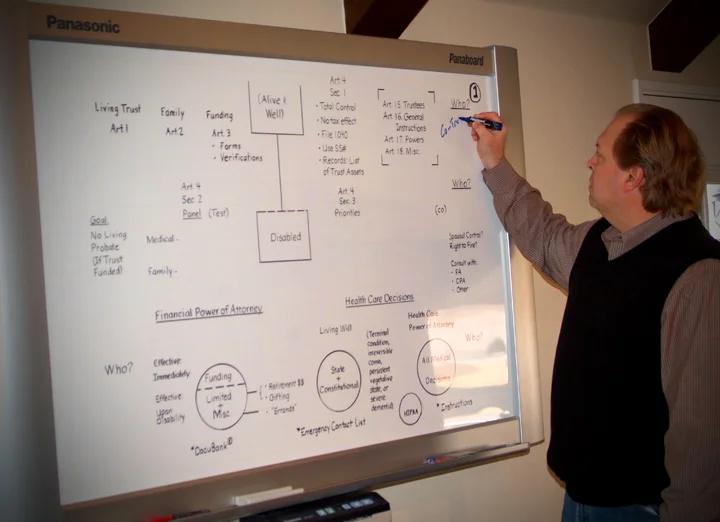 Panasonic
Panaboard
Living Trust
Art.1
Family
Art.2
Funding
Art. 3
• Forms
• Verifications
(Alive &
Well)
Art. 4
Sec. 1
• Total Control
• No tax effect
• File 1040
• Use SS#
• Records: List
of Trust Assets
Art. 15. Trustees
Art. 16. General
Instructions
Art. 17. Powers
Art. 18. Misc.
1
Who?
Art. 4
Sec. 2
Panel (Test)
Goal
No Living
Probate
(If Trust
Funded)
Medical-
Family-
Disabled
Art. 4
Sec. 3
Priorities
Who?
(co)
Spousal Control?
Right to Fire?
Consult with:
- FA
- CPA
- Other
Financial Power of Attorney
Who?
Effective:
Immediately
Effective:
Upon
Disability
Funding
Limited
+
Misc
• Retirement $$
• Gifting
• "Errands"
*DocuBank®
Health Care Decisions
Living Will
State
+
Constitutional
(Terminal
condition,
irreversible
coma,
persistent
vegetative
state, or
severe
dementia)
*Emergency Contact List
Health Care
Power of Attorney
Who?
All Medical
Decisions
HIPAA
*Instructions